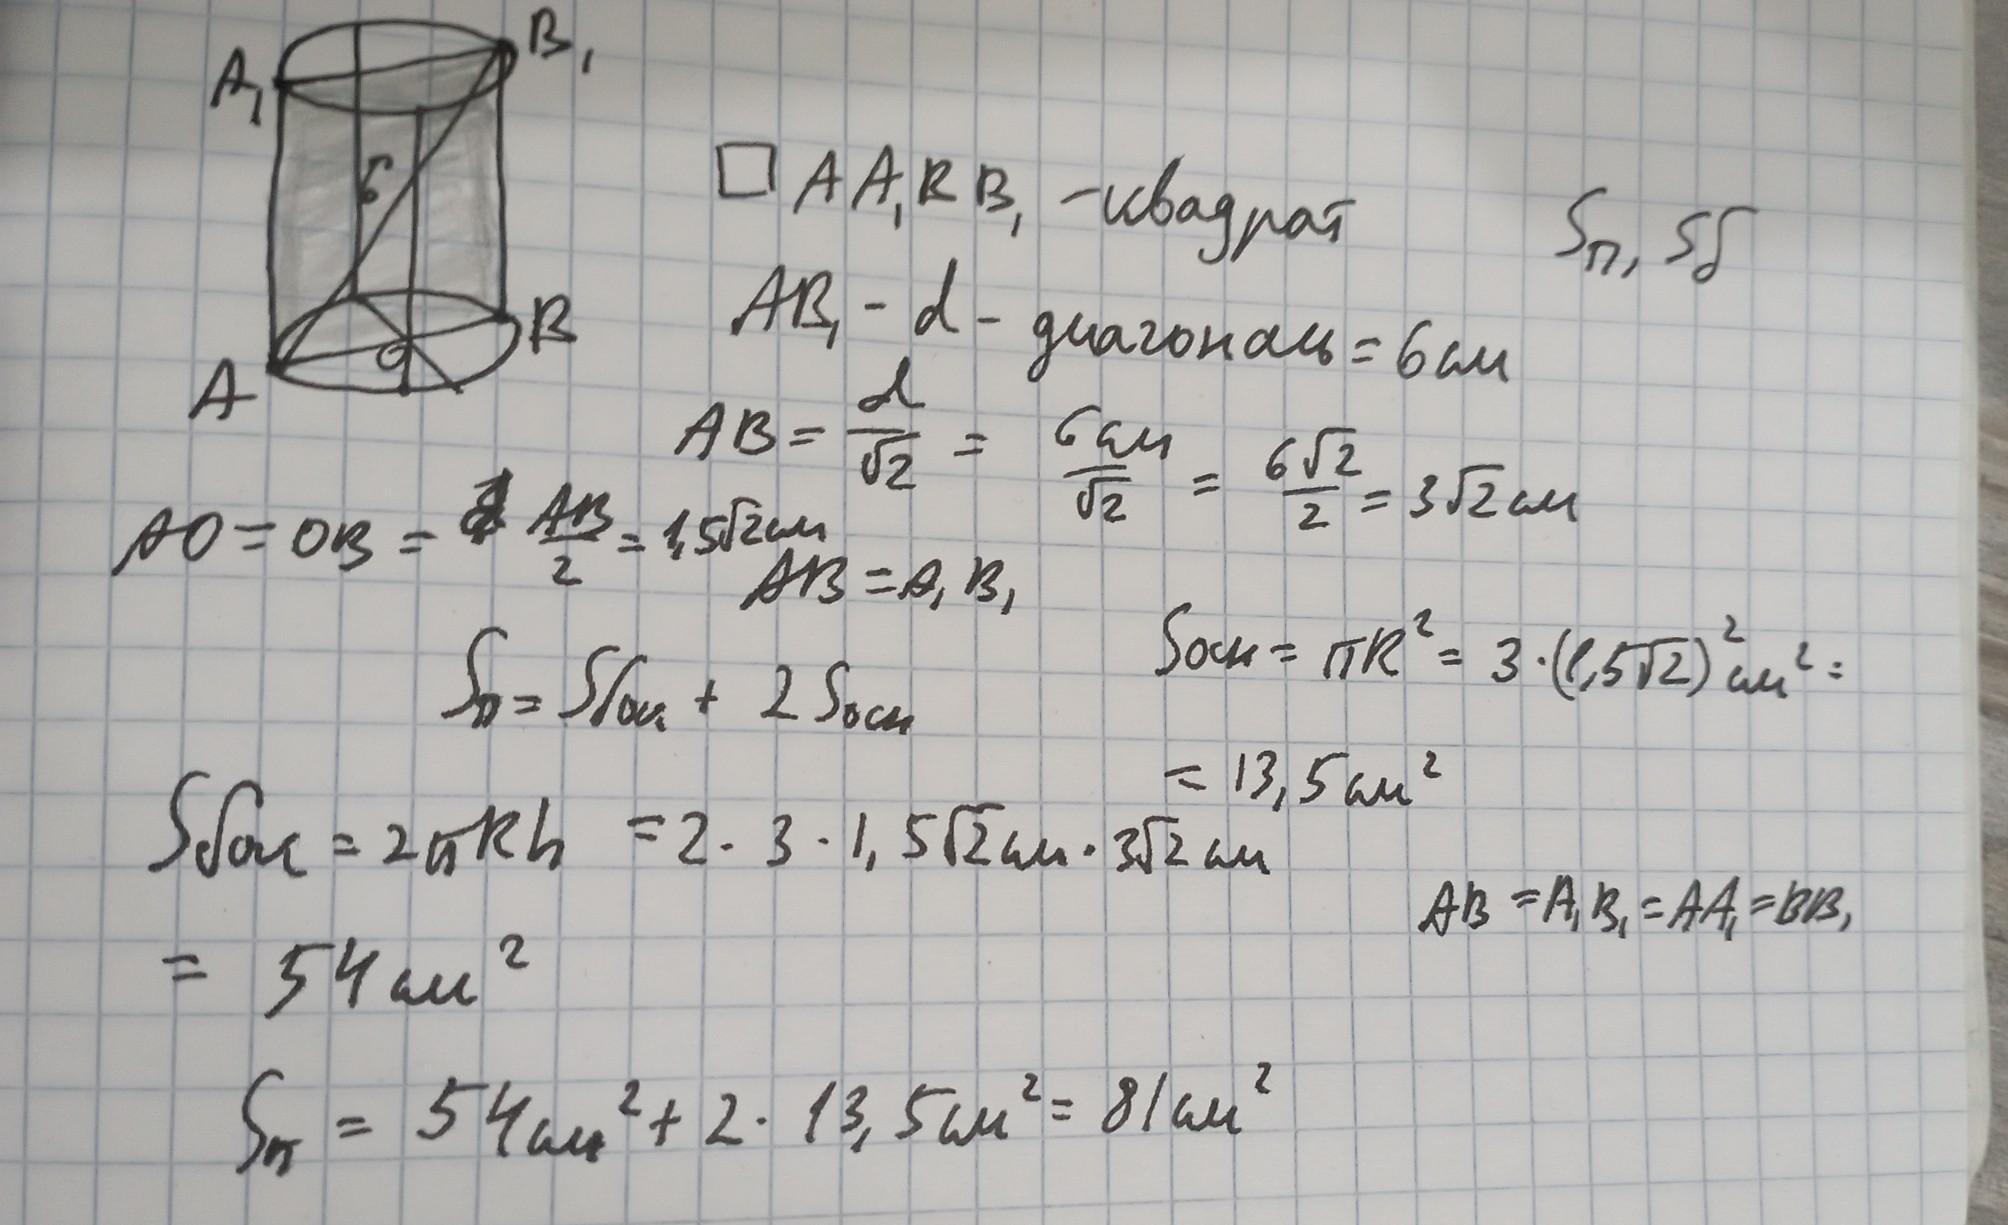 A₁ B₁
6
A O B
□ AA₁BB₁ - квадрат
Sп, Sб
AB₁ - d - диагональ = 6 см
AB = d/√2 = 6 см/√2 = 6√2/2 = 3√2 см
AO = OB = AB/2 = 1,5√2 см
AB = A₁B₁
Sп = Sбок + 2 Sосн
Sосн = πR² = 3·(1,5√2)² см² =
= 13,5 см²
Sбок = 2πRh = 2·3·1,5√2 см·3√2 см
= 54 см²
AB = A₁B₁ = AA₁ = BB₁
Sп = 54 см² + 2·13,5 см² = 81 см²